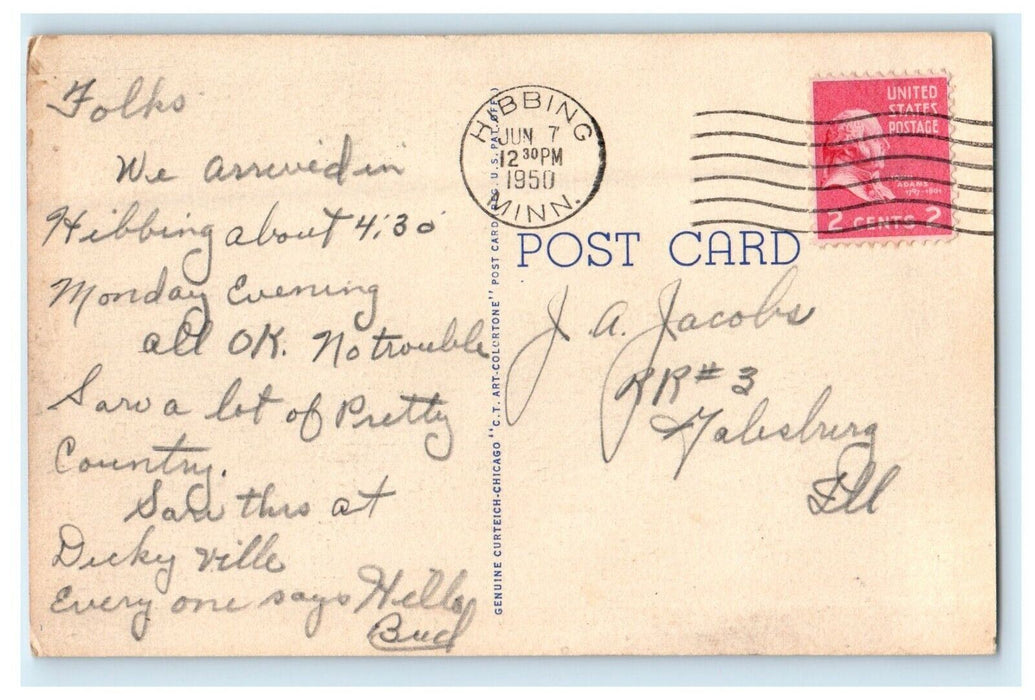 Folks
We arrived in
Hibbing about 4:30
Monday Evening
all OK. No trouble
Saw a lot of Pretty
Country.
Saw this at
Dicky ville
Every one says Hello
Bud
GENUINE CURTEICH-CHICAGO "C.T. ART-COLORTONE" POST CARD (REG. U.S. PAT. OFF.)
HIBBING
JUN 7
12 30 PM
1950
MINN.
UNITED
STATES
POSTAGE
ADAMS
1797-1801
2 CENTS 2
POST CARD
J. A. Jacobs
RR# 3
Galesburg
Ill